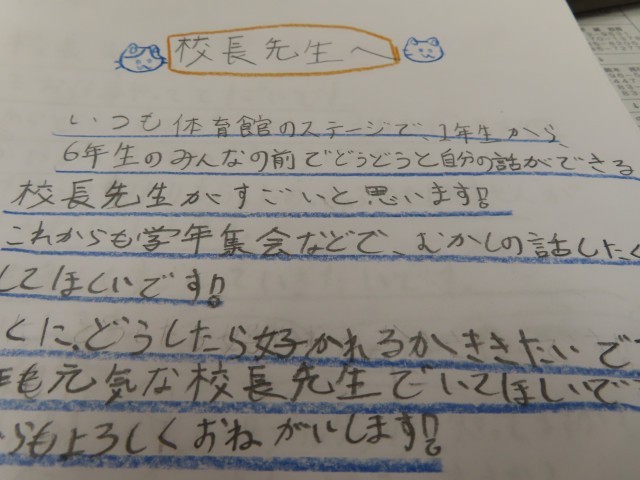 校長先生へ
いつも体育館のステージで、1年生から、
6年生のみんなの前でどうどうと自分の話ができる
校長先生がすごいと思います!!
これからも学年集会などで、むかしの話したく
してほしいです!!
くに、どうしたら好かれるかききたいで
も元気な校長先生でいてほしいで
らもよろしくおねがいします!!